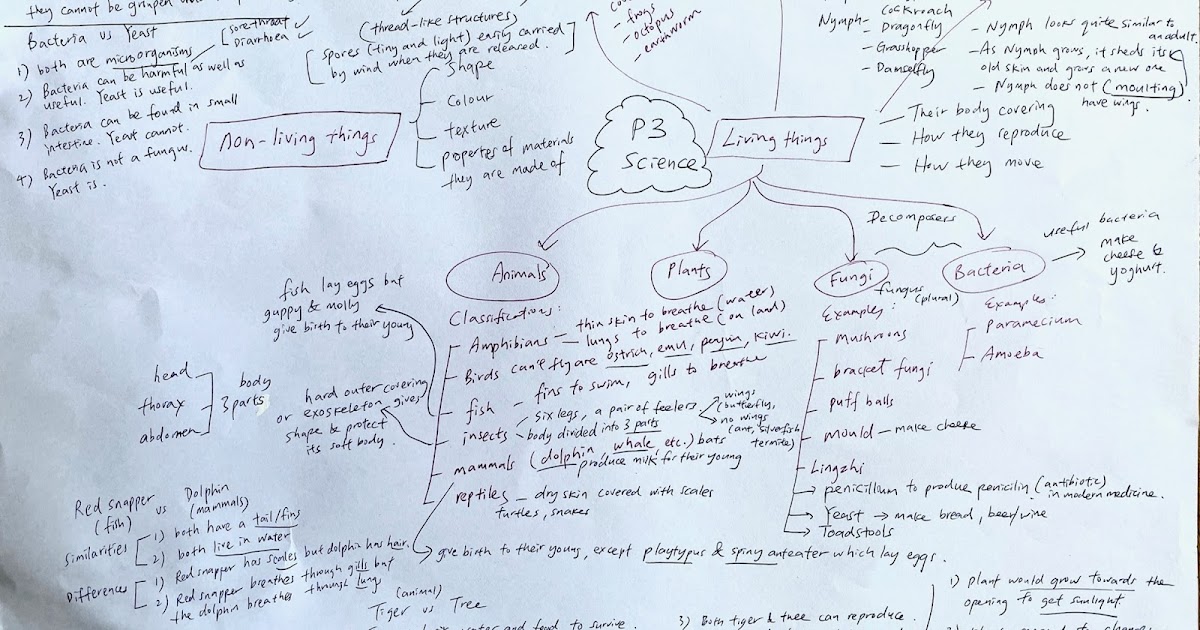 they cannot be
Bacteria vs Yeast
1) both are microorganisms
2) Bacteria can be harmful as well as
useful. Yeast is useful.
3) Bacteria can be found in small
intestine. Yeast cannot.
4) Bacteria is not a fungus.
Yeast is.
sore throat ✓
Diarrhoea ✓
(thread-like structures)
spores (tiny and light) easily carried
by wind when they are released.
Non-living things
shape
colour
texture
properties of materials
they are made of
P3
Science
- frogs
- octopus
- earthworm
Living things
Nymph-
cockroach
- Dragonfly
- Grasshopper
- Damselfly
- Nymph looks quite similar to
an adult.
- As Nymph grows, it sheds its
old skin and grows a new one
(moulting)
- Nymph does not
have wings.
- Their body covering
- How they reproduce
- How they move
Decomposers
Animals
Plants
Fungi
Bacteria
useful bacteria
make
cheese &
yoghurt.
fungus
(plural)
Examples:
Paramecium
Amoeba
Examples:
mushrooms
bracket fungi
puff balls
mould - make cheese
Lingzhi
penicillum to produce penicilin (antibiotic)
in modern medicine.
Yeast → make bread, beer/wine
Toadstools
Classifications:
Amphibians - thin skin to breathe (water)
- lungs to breathe (on land)
Birds can't fly are ostrich, emu, penguin, kiwi.
fish - fins to swim, gills to breathe
insects - six legs, a pair of feelers
- body divided into 3 parts
wings
(butterfly,
no wings
(ant, silverfish
termite)
mammals (dolphin, whale etc.) bats
produce milk for their young
reptiles - dry skin covered with scales
turtles, snakes
give birth to their young, except playtypus & spiny anteater which lay eggs.
fish lay eggs but
guppy & molly
give birth to their young
head
thorax
abdomen
body
3 parts
hard outer covering
or exoskeleton gives
shape & protect
its soft body.
Red snapper
(fish)
vs
Dolphin
(mammals)
Similarities
1) both have a tail/fins
2) both live in water
Differences
1) Red snapper has scales but dolphin has hair.
2) Red snapper breathes through gills but
the dolphin breathes through lungs
(animal)
Tiger vs Tree
water and food to survive.
3) Both tiger & tree can reproduce.
1) plant would grow towards the
opening to get sunlight.